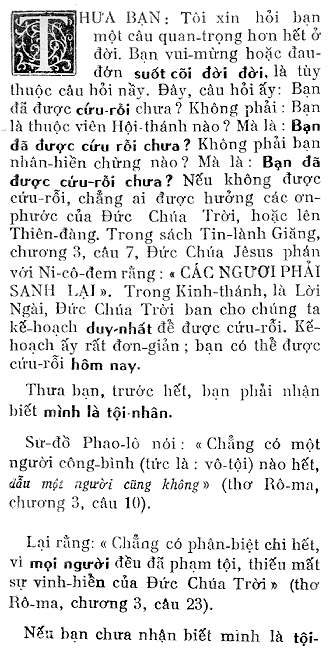 THƯA BẠN: Tôi xin hỏi bạn
một câu quan-trọng hơn hết ở
đời. Bạn vui-mừng hoặc đau-
đớn suốt cõi đời đời, là tùy
thuộc câu hỏi nầy. Đây, câu hỏi ấy: Bạn
đã được cứu-rỗi chưa? Không phải: Bạn
là thuộc viên Hội-thánh nào? Mà là: Bạn
đã được cứu rỗi chưa? Không phải bạn
nhân-hiền chừng nào? Mà là: Bạn đã
được cứu-rỗi chưa? Nếu không được
cứu-rỗi, chẳng ai được hưởng các ơn-
phước của Đức Chúa Trời, hoặc lên
Thiên-đàng. Trong sách Tin-lành Giăng,
chương 3, câu 7, Đức Chúa Jêsus phán
với Ni-cô-đem rằng: « CÁC NGƯƠI PHẢI
SANH LẠI ». Trong Kinh-thánh, là Lời
Ngài, Đức Chúa Trời ban cho chúng ta
kế-hoạch duy-nhất để được cứu-rỗi. Kế-
hoạch ấy rất đơn-giản; bạn có thể được
cứu-rỗi hôm nay.
Thưa bạn, trước hết, bạn phải nhận
biết mình là tội-nhân.
Sứ-đồ Phao-lô nói: « Chẳng có một
người công-bình (tức là: vô-tội) nào hết,
dẫu một người cũng không » (thơ Rô-ma,
chương 3, câu 10).
Lại rằng: « Chẳng có phân-biệt chi hết,
vì mọi người đều đã phạm tội, thiếu mất
sự vinh-hiển của Đức Chúa Trời » (thơ
Rô-ma, chương 3, câu 23).
Nếu bạn chưa nhận biết mình là tội-